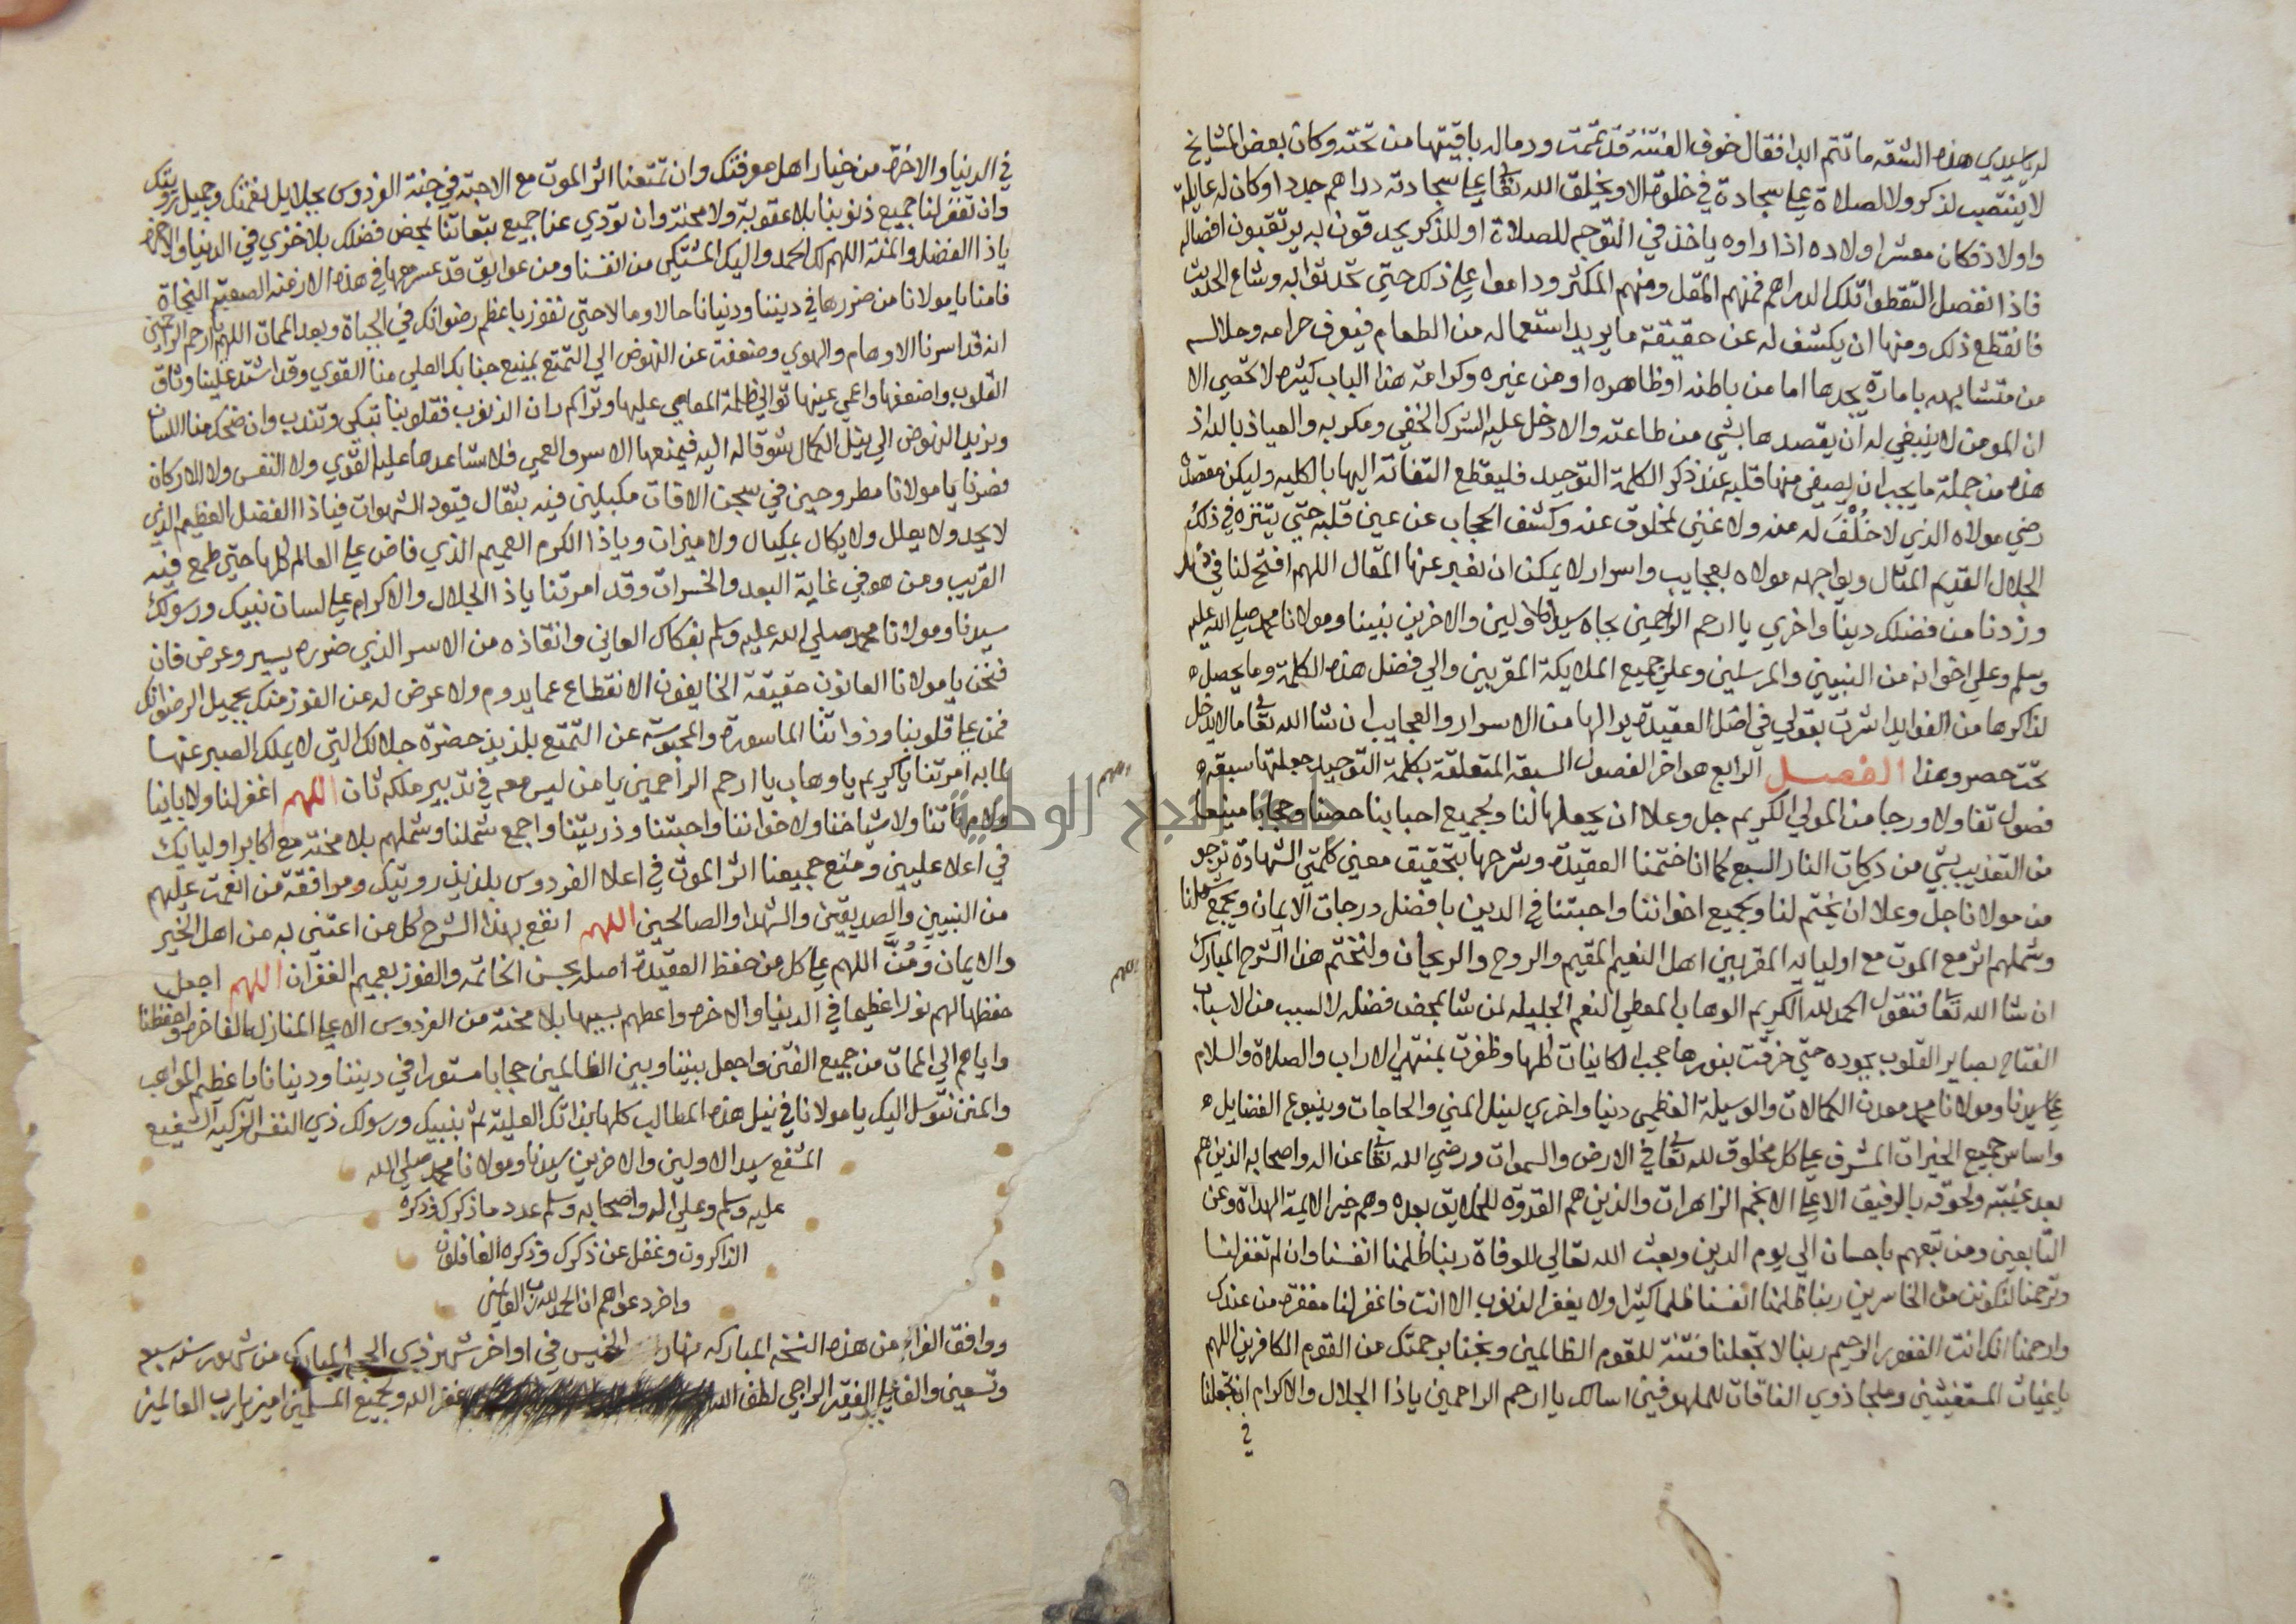 له يا سيدي هذه الشقه ما تتم ابدا فقال خوف الفتنة قد تمت ورماله باقيتها من تحته وكان بعض المشايخ
لا ينتصب لذكر ولا لصلاة على سجادة في خلوة الا ويخلق الله تعالى على سجادته دراهم جددا وكان له عايلة
واولاد فكان معشر اولاده اذا راوه ياخذ في التوجه للصلاة او للذكر يحدقون به يرتقبون انفصاله
فاذا انفصل التقطوا تلك الدراهم فمنهم المقل ومنهم المكثر وداموا على ذلك حتى تحدثوا به وشاع الحديث
فانقطع ذلك ومنها ان يكشف له عن حقيقة ما يريد استعماله من الطعام فيعرف حرامه وحلاله
من متشابهه بامارة يجدها اما من باطنه او ظاهره او من غيره وكرامة هذا الباب كثيره لا تحصى الا
ان المومن لا ينبغي له ان يقصدها بشي من طاعته والا دخل عليه الشرك الخفي ومكر به والعياذ بالله اذ
هذه من جملة ما يجب ان يصفي منها قلبه عند ذكر الكلمة التوحيد فليقطع التفاته اليها بالكليه وليكن مقصده
رضي مولاه الذي لا خُلْفَ له منه ولا غني لمخلوق عنه وكشف الحجاب عن عين قلبه حتي يتنزه في ذلك
الجلال القديم المثال ويواجهه مولاه بعجايب واسرار لا يمكن ان يعبر عنها المقال اللهم افتح لنا في ذلك
وزدنا من فضلك دينا واخري يا ارحم الراحمين بجاه سيد الاولين والاخرين نبينا ومولانا محمد صلى الله عليه
وسلم وعلي اخوانه من النبيين والمرسلين وعلى جميع الملايكة المقربين والي فضل هذه الكلمة وما يحصل
لذاكرها من الفوايد اشرت بقولي في اصل العقيدة ير لها من الاسرار والعجايب ان شا الله تعالى ما لا يدخل
تحت حصر وهذا الفصل الرابع هو اخر الفصول السبعة المتعلقة بكلمة التوحيد جعلتها سبعة
فصول تفاولا ورجا من المولي الكريم جل وعلا ان يجعلها لنا ولجميع احبابنا حصنا وحجابا منيعا
من التعذيب بشي من دركات النار السبع كما انا ختمنا العقيدة وشرحها بتحقيق معنى كلمتي الشهادة نرجو
من مولانا جل وعلا ان يختم لنا ولجميع اخواننا واحبتنا في الدين بافضل درجات الايمان ويجمع شملنا
وشملهم اثر مع الموت مع اوليايه المقربين اهل النعيم المقيم والروح والريحان ولنختم هذا الشرح المبارك
ان شا الله تعالى فنقول الحمد لله الكريم الوهاب المعطي النعم الجليله لمن شا بمحض فضله لا لسبب من الاسباب
الفتاح بصاير القلوب بجوده حتي خرقت بنورها حجب الكاينات كلها وظفرت بمنتهى الاراب والصلاة والسلام
على سيدنا ومولانا محمد معدن الكمالات والوسيلة العظمي دينا واخري لنيل المني والحاجات وينبوع الفضايل
واساس جميع الخيرات المشرف على كل مخلوق لله تعالى في الارض والسموات ورضي الله تعالى عن اله واصحابه الذين هم
بعد غيبته ولحوقه بالرفيق الاعلى الانجم الزاهرات والذين هم القدوه للخلايق بعده وهم خير الايمة الهداة وعن
التابعين ومن تبعهم باحسان الي يوم الدين وبعث الله تعالي للوفاة ربنا ظلمنا انفسنا وان لم تغفر لنا
وترحمنا لنكونن من الخاسرين ربنا ظلمنا انفسنا ظلما كثيرا ولا يغفر الذنوب الا انت فاغفر لنا مغفرة من عندك
وارحمنا انك انت الغفور الرحيم ربنا لا تجعلنا فتنة للقوم الظالمين ونجنا برحمتك من القوم الكافرين اللهم
يا غياث المستغيثين وملجا ذوي الفاقات للملهوفين اسالك يا ارحم الراحمين يا ذا الجلال والاكرام ان تجعلنا
في
في الدنيا والاخرة من خيار اهل معرفتك وان تمتعنا اثر الموت مع الاحبة في جنة الفردوس بجلايل نعمتك وجميل رويتك
وان تغفر لنا جميع ذنوبنا بلا عقوبة ولا محنة وان تودي عنا جميع تبعاتنا بمحض فضلك بلا خزي في الدنيا والاخرة
يا ذا الفضل والمنة اللهم لك الحمد واليك المشتكي من انفسنا ومن عوايق قد عسر معها في هذه الازمنه الصعبة النجاة
فامنا يا مولانا من ضررها في ديننا ودنيانا حالا ومالا حتى نفوز باعظم رضوانك في الحياة وبعد الممات اللهم يا ارحم الراحمين
انه قد اسرنا الاوهام والهوي وضعفت عن النهوض الي التمتع بمنيع جنابك العلي منا القوي وقد اشتد علينا وثاق
القلوب واضعفها واعمي عينها توالي ظلمة المعاصي عليها وتراكم ران الذنوب فقلوبنا تبكي وتندب وان ضحك منا اللسان
وتريد النهوض الي نيل الكمال شوقا له اليه فيمنعها الاسر والعمي فلا تساعدها عليه القوي ولا النفس ولا الاركان
فصرنا يا مولانا مطروحين في سجن الافات مكبلين فيه بثقال قيود الشهوات فيا ذا الفضل العظيم الذي
لا يحد ولا يعلل ولا يكال بمكيال ولا ميزان ويا ذا الكرم العميم الذي فاض على العالم كلها حتي طمع فيه
القريب ومن هو في غاية البعد والخسران وقد امرتنا يا ذا الجلال والاكرام على لسان نبيك ورسولك
سيدنا ومولانا محمد صلي الله عليه وسلم بفكاك العاني وانقاذه من الاسر الذي ضرره يسير وعرض فان
فنحن يا مولانا العانون حقيقة الخايفون الانقطاع عما يدوم ولا عوض له عن الفوز منك بجميل الرضوان
فمن على قلوبنا وذواتنا الماسورة والمحبوسة عن التمتع بلذيذ حضرة جلالك التي لا يملك الصبر عنها
لما به امرتنا يا كريم يا وهاب يا ارحم الراحمين يا من ليس معه في تدبير ملكه ثان اللهم اغفر لنا ولابائنا
ولامهاتنا ولاشياخنا ولاخواننا واحبتنا وذريتنا واجمع شملنا وشملهم بلا محنة مع اكابر اوليايك
في اعلا عليين ومتع جميعنا اثر الموت في اعلا الفردوس بلذيذ رويتك ومرافقة من انعمت عليهم
من النبيين والصديقين والشهدا والصالحين اللهم انفع بهذا الشرح كل من اعتني به من اهل الخير
والايمان وَمُنَّ اللهم على كل من حفظ العقيدة اصله بحسن الخاتمه والفوز بعميم الغفران اللهم اجعل
حفظها لهم نورا عظيما في الدنيا والاخرة واعطهم بسببها بلا محنة من الفردوس الاعلى المنازل الفاخرة واحفظنا
واياهم الي الممات من جميع الفتن واجعل بيننا وبين الظالمين حجابا مستورا في ديننا ودنيانا يا عظيم المواهب
والمنن نتوسل اليك يا مولانا في نيل هذه المطالب كلها بذاتك العلية ثم بنبيك ورسولك ذي النفس الزكية الشفيع
المشفع سيد الاولين والاخرين سيدنا ومولانا محمد صلي الله
عليه وسلم وعلي اله واصحابه وسلم عدد ما ذكرك وذكره
الذاكرون وغفل عن ذكرك وذكره الغافلون
واخر دعواهم ان الحمد لله رب العالمين
ووافق الفراغ من هذه النسخه المباركه نهار الخميس في اواخر شهر ذي الحجه المبارك من شهور سنه سبع
وتسعين والف على يد الفقير الراجي لطف الله غفر الله ولجميع المسلمين امين يا رب العالمين
جامعة النجاح الوطنية